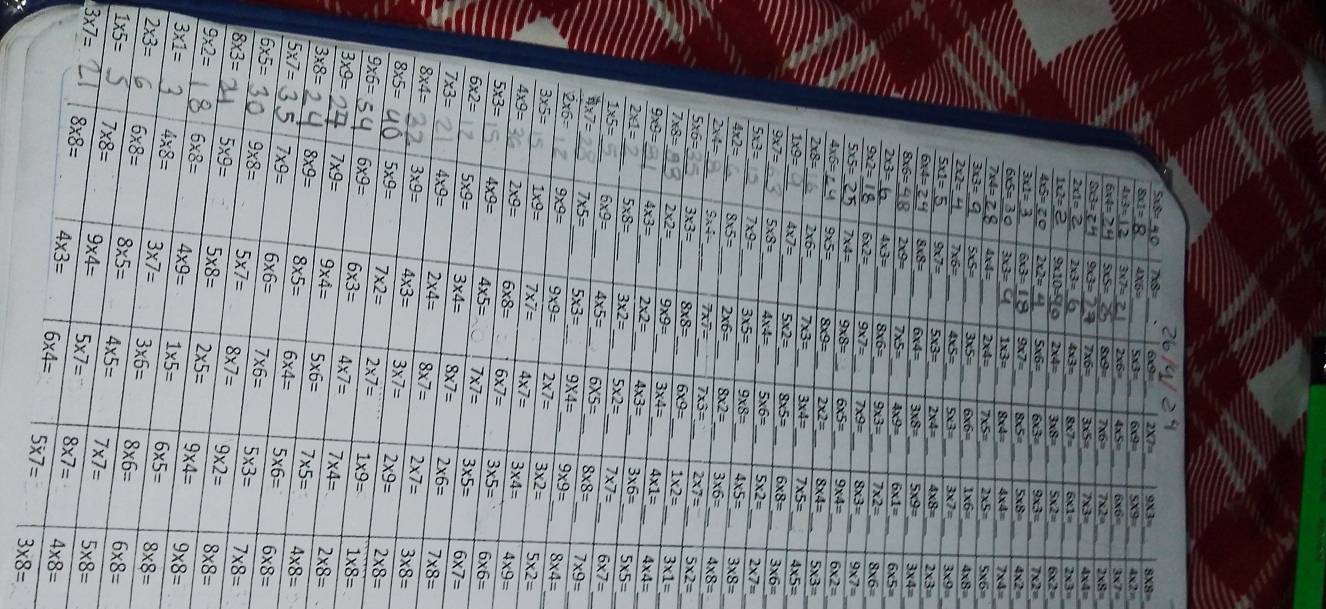 26/9/24
5x8= 40 7x8= 6x9= 2x7= 9x3= 8x8=
8x1= 8 4x6= 5x3= 6x9= 5x9= 4x2=
4x3= 12 3x7= 21 2x6= 4x5= 6x6= 3x7=
6x4= 24 5x5= 25 8x9= 7x6= 7x2= 2x8=
8x3= 24 9x3= 27 7x6= 3x5= 7x3= 4x4=
2x1= 2 2x3= 6 4x3= 8x7= 6x1= 2x3=
1x2= 2 9x10= 90 2x4= 3x8= 5x2= 6x2=
4x5= 20 2x2= 4 5x6= 6x3= 9x3= 7x2=
3x1= 3 6x3= 18 9x7= 8x5= 5x8= 4x2=
6x5= 30 3x3= 9 1x3= 8x4= 4x4= 7x4=
7x4= 28 4x4= 2x4= 7x5= 2x5= 5x6=
3x3= 9 5x5= 3x5= 6x6= 1x6= 4x8=
2x2= 4 7x6= 4x5= 5x3= 3x7= 3x9=
5x1= 5 9x7= 5x3= 2x4= 4x8= 2x3=
6x4= 24 8x8= 6x4= 3x8= 5x9= 3x4=
8x6= 48 2x9= 7x5= 4x9= 6x1= 6x5=
2x3= 6 4x3= 8x6= 9x3= 7x2= 8x6=
9x2= 18 6x2= 9x7= 7x9= 8x3= 9x7=
5x5= 25 7x4= 9x8= 6x5= 9x4= 6x2=
4x6= 24 9x5= 8x9= 2x2= 8x4= 5x3=
2x8= 16 2x6= 7x3= 3x4= 7x5= 4x5=
1x9= 9 4x7= 5x2= 8x5= 6x8= 3x6=
9x7= 63 5x8= 4x4= 5x6= 5x2= 2x7=
5x3= 7x9= 3x5= 9x8= 4x5= 3x8=
4x2= 8x5= 2x6= 8x2= 3x6= 4x8=
2x4= 8 7x7= 7x3= 2x7= 5x2=
5x6= 3x3= 8x8= 6x9= 1x2= 3x1=
7x8= 2x2= 9x9= 3x4= 4x1= 4x4=
9x9= 81 4x3= 2x2= 4x3= 3x6= 5x5=
2x1= 2 5x8= 3x2= 5x2= 7x7= 6x7=
1x5= 5 6x9= 4x5= 6x5= 8x8= 7x9=
4x7= 28 7x5= 5x3= 9x4= 9x9= 8x4=
2x6= 12 9x9= 9x9= 2x7= 3x2= 5x2=
3x5= 15 1x9= 7x7= 4x7= 3x4= 4x9=
4x9= 36 2x9= 6x8= 6x7= 3x5= 6x6=
5x3= 15 4x9= 4x5= 7x7= 3x5= 6x7=
6x2= 12 5x9= 3x4= 8x7= 2x6= 7x8=
7x3= 21 4x9= 2x4= 8x7= 2x7= 3x8=
8x4= 32 3x9= 4x3= 3x7= 2x9= 2x8=
8x5= 40 5x9= 7x2= 2x7= 1x9= 1x8=
9x6= 54 6x9= 6x3= 4x7= 7x4= 2x8=
3x9= 27 7x9= 9x4= 5x6= 7x5= 4x8=
3x8= 24 8x9= 8x5= 6x4= 5x6= 6x8=
5x7= 35 7x9= 6x6= 7x6= 5x3= 7x8=
6x5= 30 9x8= 5x7= 8x7= 9x2= 8x8=
8x3= 24 5x9= 5x8= 2x5= 9x4= 9x8=
9x2= 18 6x8= 4x9= 1x5= 6x5= 8x8=
3x1= 3 4x8= 3x7= 3x6= 8x6= 6x8=
2x3= 6 6x8= 8x5= 4x5= 7x7= 5x8=
1x5= 5 7x8= 9x4= 5x7= 8x7= 4x8=
3x7= 21 8x8= 4x3= 6x4= 5x7= 3x8=